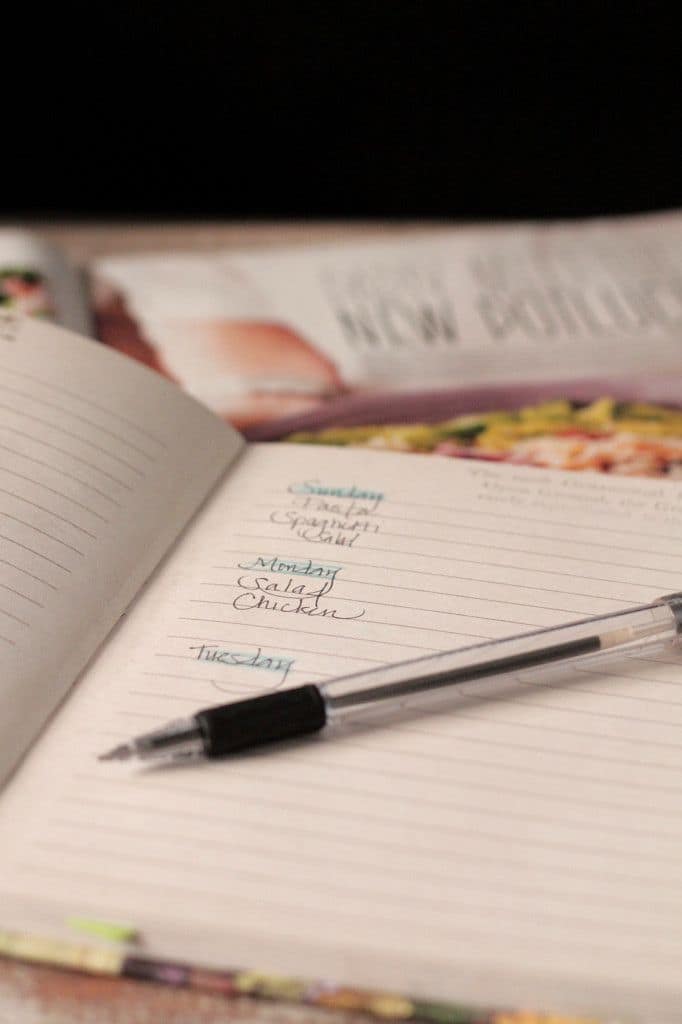 NEW POTLUCK
Sunday
Pasta
Spaghetti
Salad
Monday
Salad
Chicken
Tuesday